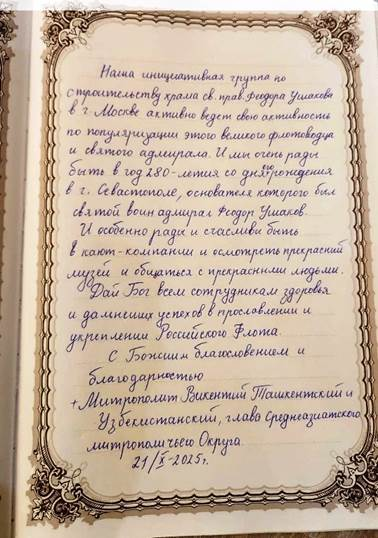 Наша инициативная группа по
строительству храма св. прав. Феодора Ушакова
в г. Москве активно ведет свою активность
по популяризации этого великого флотоводца
и святого адмирала. И мы очень рады
быть в год 280-летия со дня его рождения
в г. Севастополе, основателя которого был
святой воин адмирал Феодор Ушаков.
И особенно рады и счастливы быть
в кают-компании и осмотреть прекрасний
музей и общаться с прекрасними людьми.
Дай Бог всем сотрудникам здоровья
и дальнеших успехов в прославлении и
укреплении Российского Флота.
С Божиим благословением и
благодарностью
+ Митрополит Викентий Ташкентский и
Узбекистанский, глава Среднеазиатского
митрополичьего Округа.
21/X-2025г.